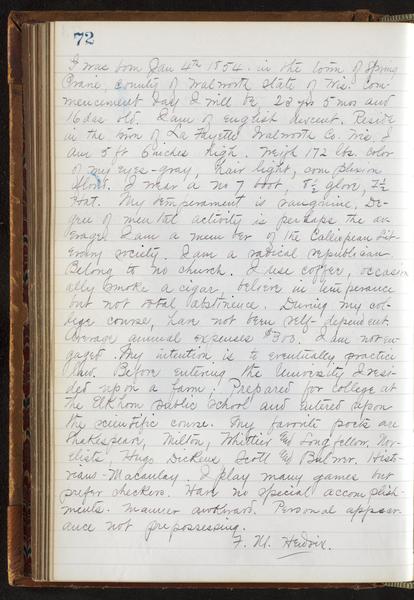 72
I was born Jan 4th 1854 in the town of Spring
Prairie, county of Walworth State of Wis. Com-
mencement day I will be 23 yrs 5 mos and
16 das old. I am of English descent. Reside
in the town of La Fayette Walworth Co. Wis. I
am 5 ft 6 inches high. Weigh 172 lbs. color
of my eyes-gray, hair light, complexion
. I wear a no 7 boot, 8½ glove, 7½
Hat. My temperament is sanguine, De-
gree of mental activity is perhaps the av-
erage. I am a member of the Calliopean Lit-
erary society. I am a radical republican.
Belong to no church. I use coffee, occasion-
ally smoke a cigar, believe in temperance
but not total abstinence. During my col-
lege course, have not been self-dependent.
Average annual expenses $300. I am not en-
gaged. My intention is to eventually practice
law. Before entering the University I resi-
ded upon a farm. Prepared for college at
the Elkhorn public School and entered upon
the scientific course. My favorite poets are
Shakespeare, Milton, Whittier & Longfellow. Nov-
elists Hugo Dickens, Scott & Bulwer. Hist-
orians-Macaulay. I play many games but
prefer checkers. Have no special accomplish-
ments. Manner awkward. Personal appear-
ance not prepossessing.
F. M.